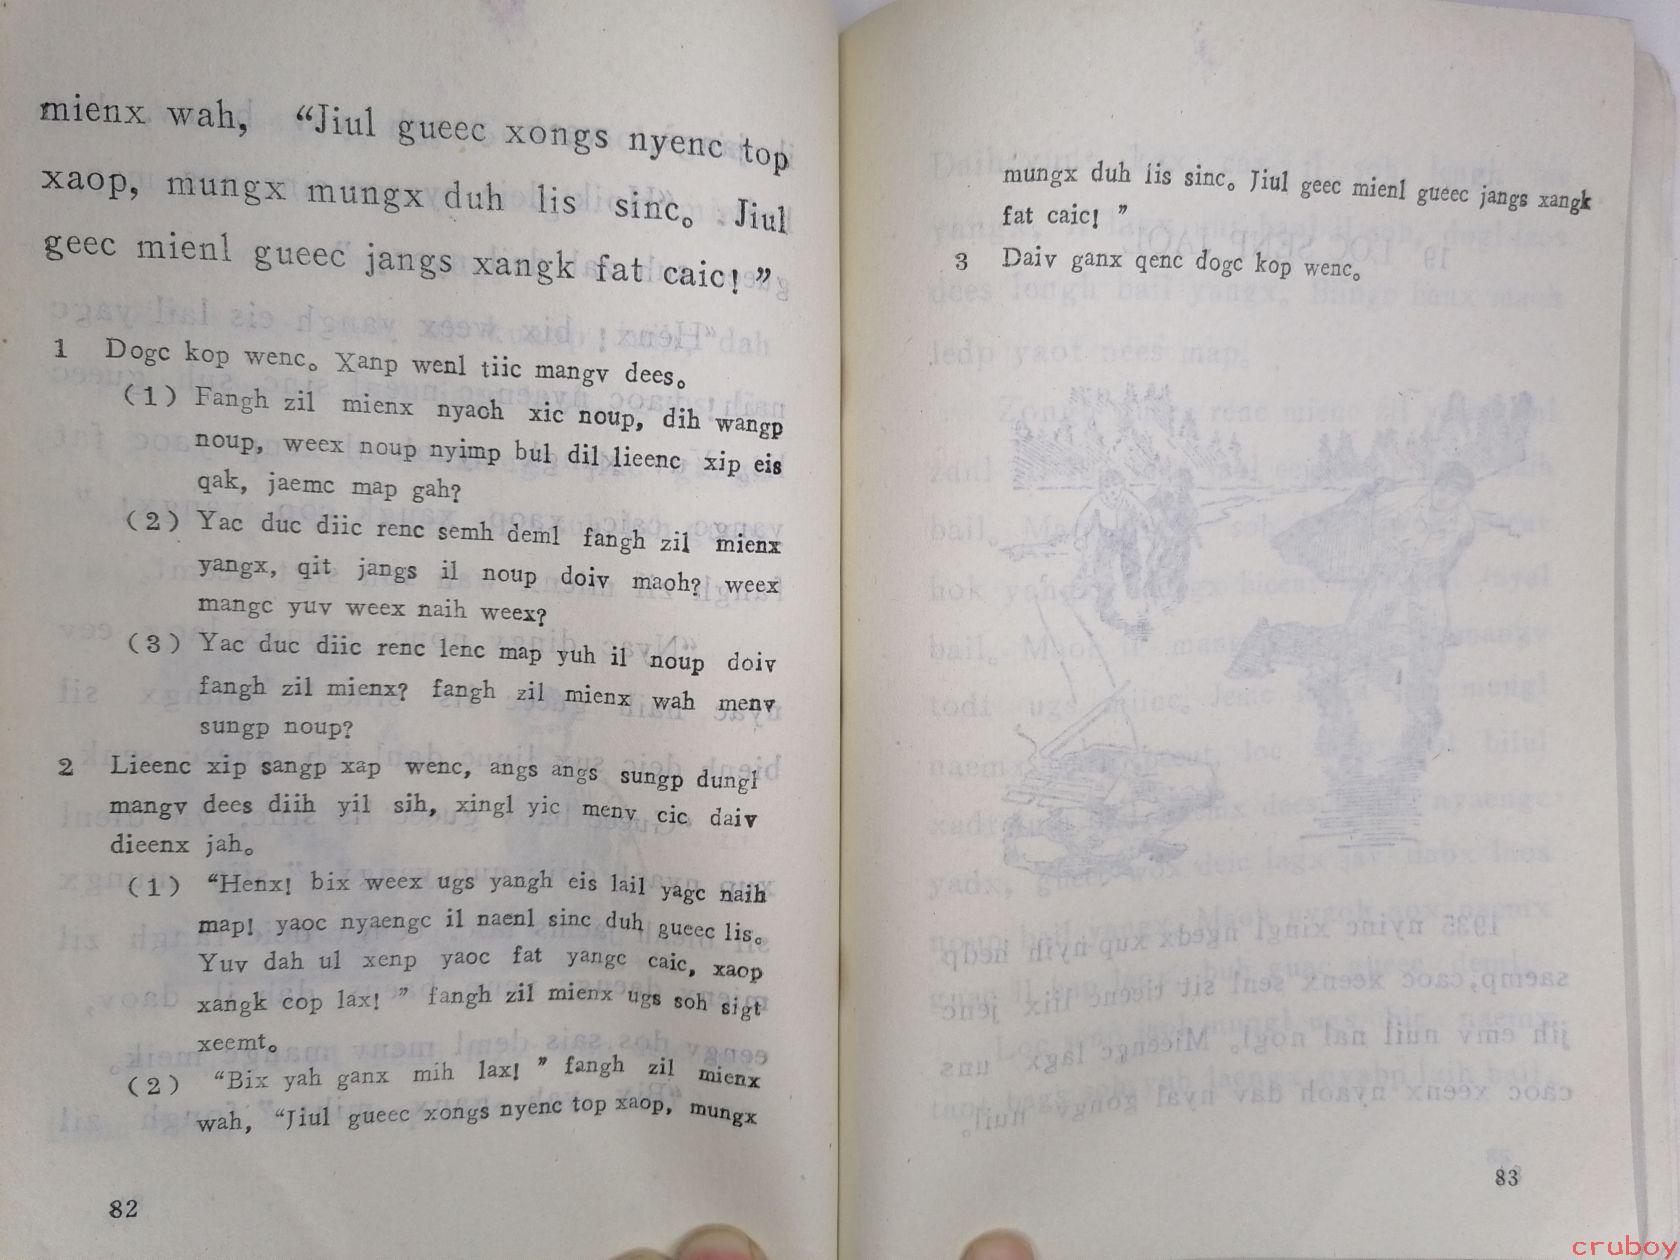 mienx wah, “Jiul gueec xongs nyenc top
xaop, mungx mungx duh lis sinc。 Jiul
geec mienl gueec jangs xangk fat caic! ”
1 Dogc kop wenc。 Xanp wenl tiic mangv dees。
(1) Fangh zil mienx nyaoh xic noup, dih wangp
noup, weex noup nyimp bul dil lieenc xip eis
qak, jaemc map gah?
(2) Yac duc diic renc semh deml fangh zil mienx
yangx, qit jangs il noup doiv maoh? weex
mangc yuv weex naih weex?
(3) Yac duc diic renc lenc map yuh il noup doiv
fangh zil mienx? fangh zil mienx wah menv
sungp noup?
2 Lieenc xip sangp xap wenc, angs angs sungp dungl
mangv dees diih yil sih, xingl yic menv cic daiv
dieenx jah。
(1) “Henx! bix weex ugs yangh eis lail yagc naih
map! yaoc nyaengc il naenl sinc duh gueec lis。
Yuv dah ul xenp yaoc fat yangc caic, xaop
xangk cop lax! ” fangh zil mienx ugs soh sigt
xeemt。
(2) “Bix yah ganx mih lax! ” fangh zil mienx
wah, “Jiul gueec xongs nyenc top xaop, mungx
82
mungx duh lis sinc。 Jiul geec mienl gueec jangs xangk
fat caic! ”
3 Daiv ganx qenc dogc kop wenc。
83
cruboy